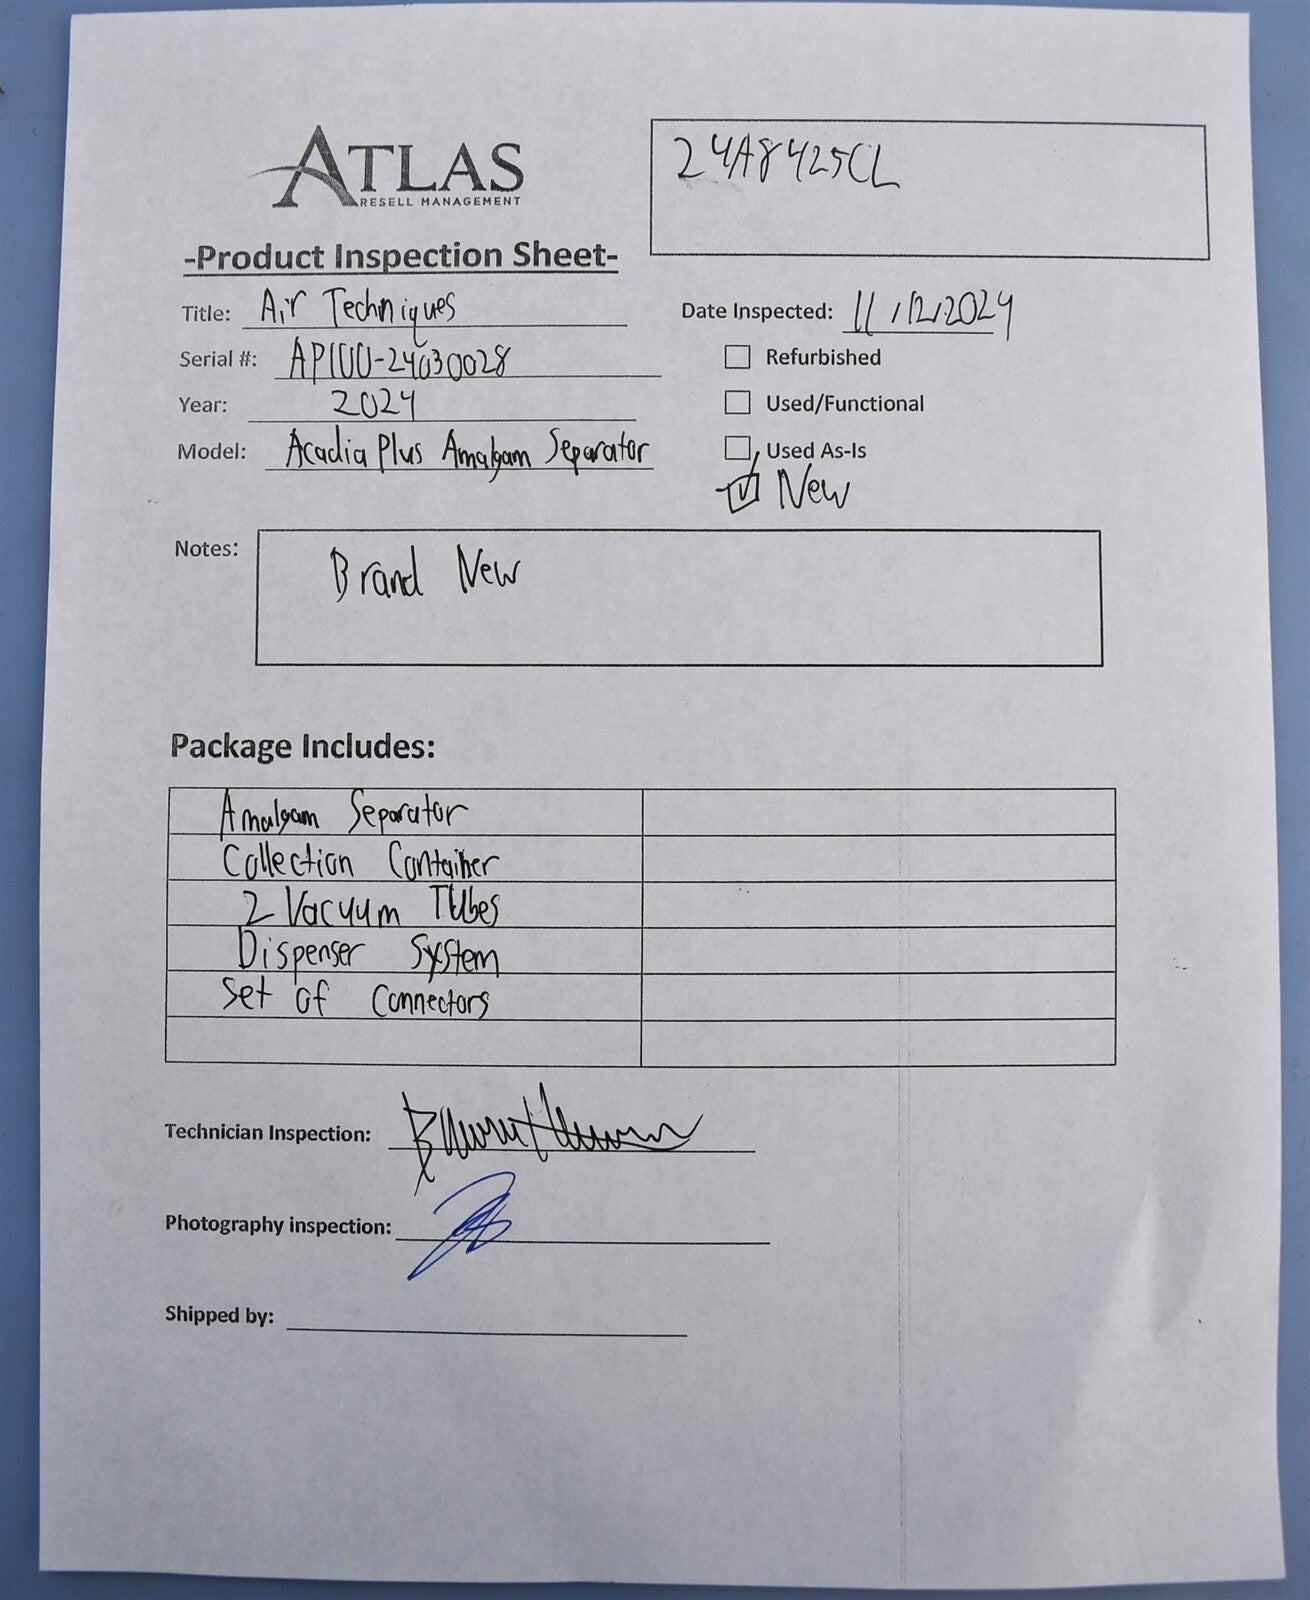 ATLAS
RESELL MANAGEMENT
24A8425CL
-Product Inspection Sheet-
Title: Air Techniques
Date Inspected: 11/12/2024
Serial #: AP100-24030028
Refurbished
Year: 2024
Used/Functional
Model: Acadia Plus Amalgam Separator
Used As-Is
New
Notes: Brand New
Package Includes:
Amalgam Separator
Collection Container
2 Vacuum Tubes
Dispenser System
Set of Connectors
Technician Inspection:
Photography inspection:
Shipped by: